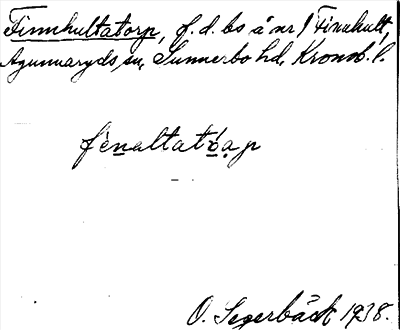 Finnhultatorp, f. d. bs å nr 1 Finnhult,
Agunnaryds sn, Sunnerbo hd, Kronob. l.
fènaltatòap
O. Segerbäck 1938.